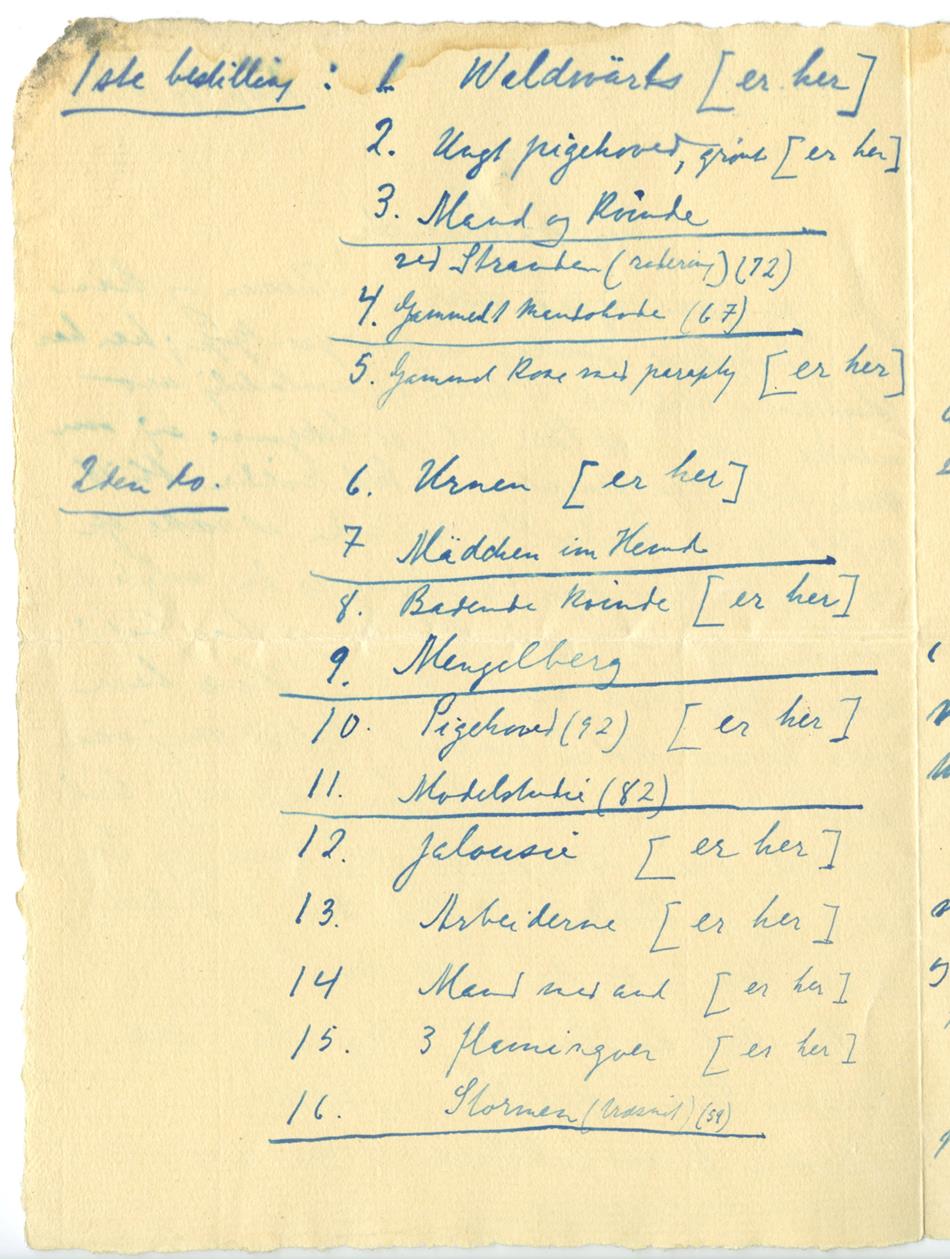 1ste bestilling : 1 Waldwärts [er her]
2. Ungt pigehoved, grönt [er her]
3. Mand og Kvinde
ved Stranden (radering) (72)
4. Gammelt mandshode (67)
5. Gammel Kone med paraply [er her]
2den do. 6. Urnen [er her]
7 Mädchen im Hemd
8. Badende Kvinde [er her]
9. Mengelberg
10. Pigehoved (92) [er her]
11. Modelstudie (82)
12. Jalousie [er her]
13. Arbeiderne [er her]
14 Mand med and [er her]
15. 3 flamingoer [er her]
16. Stormen (træsnit) (59)